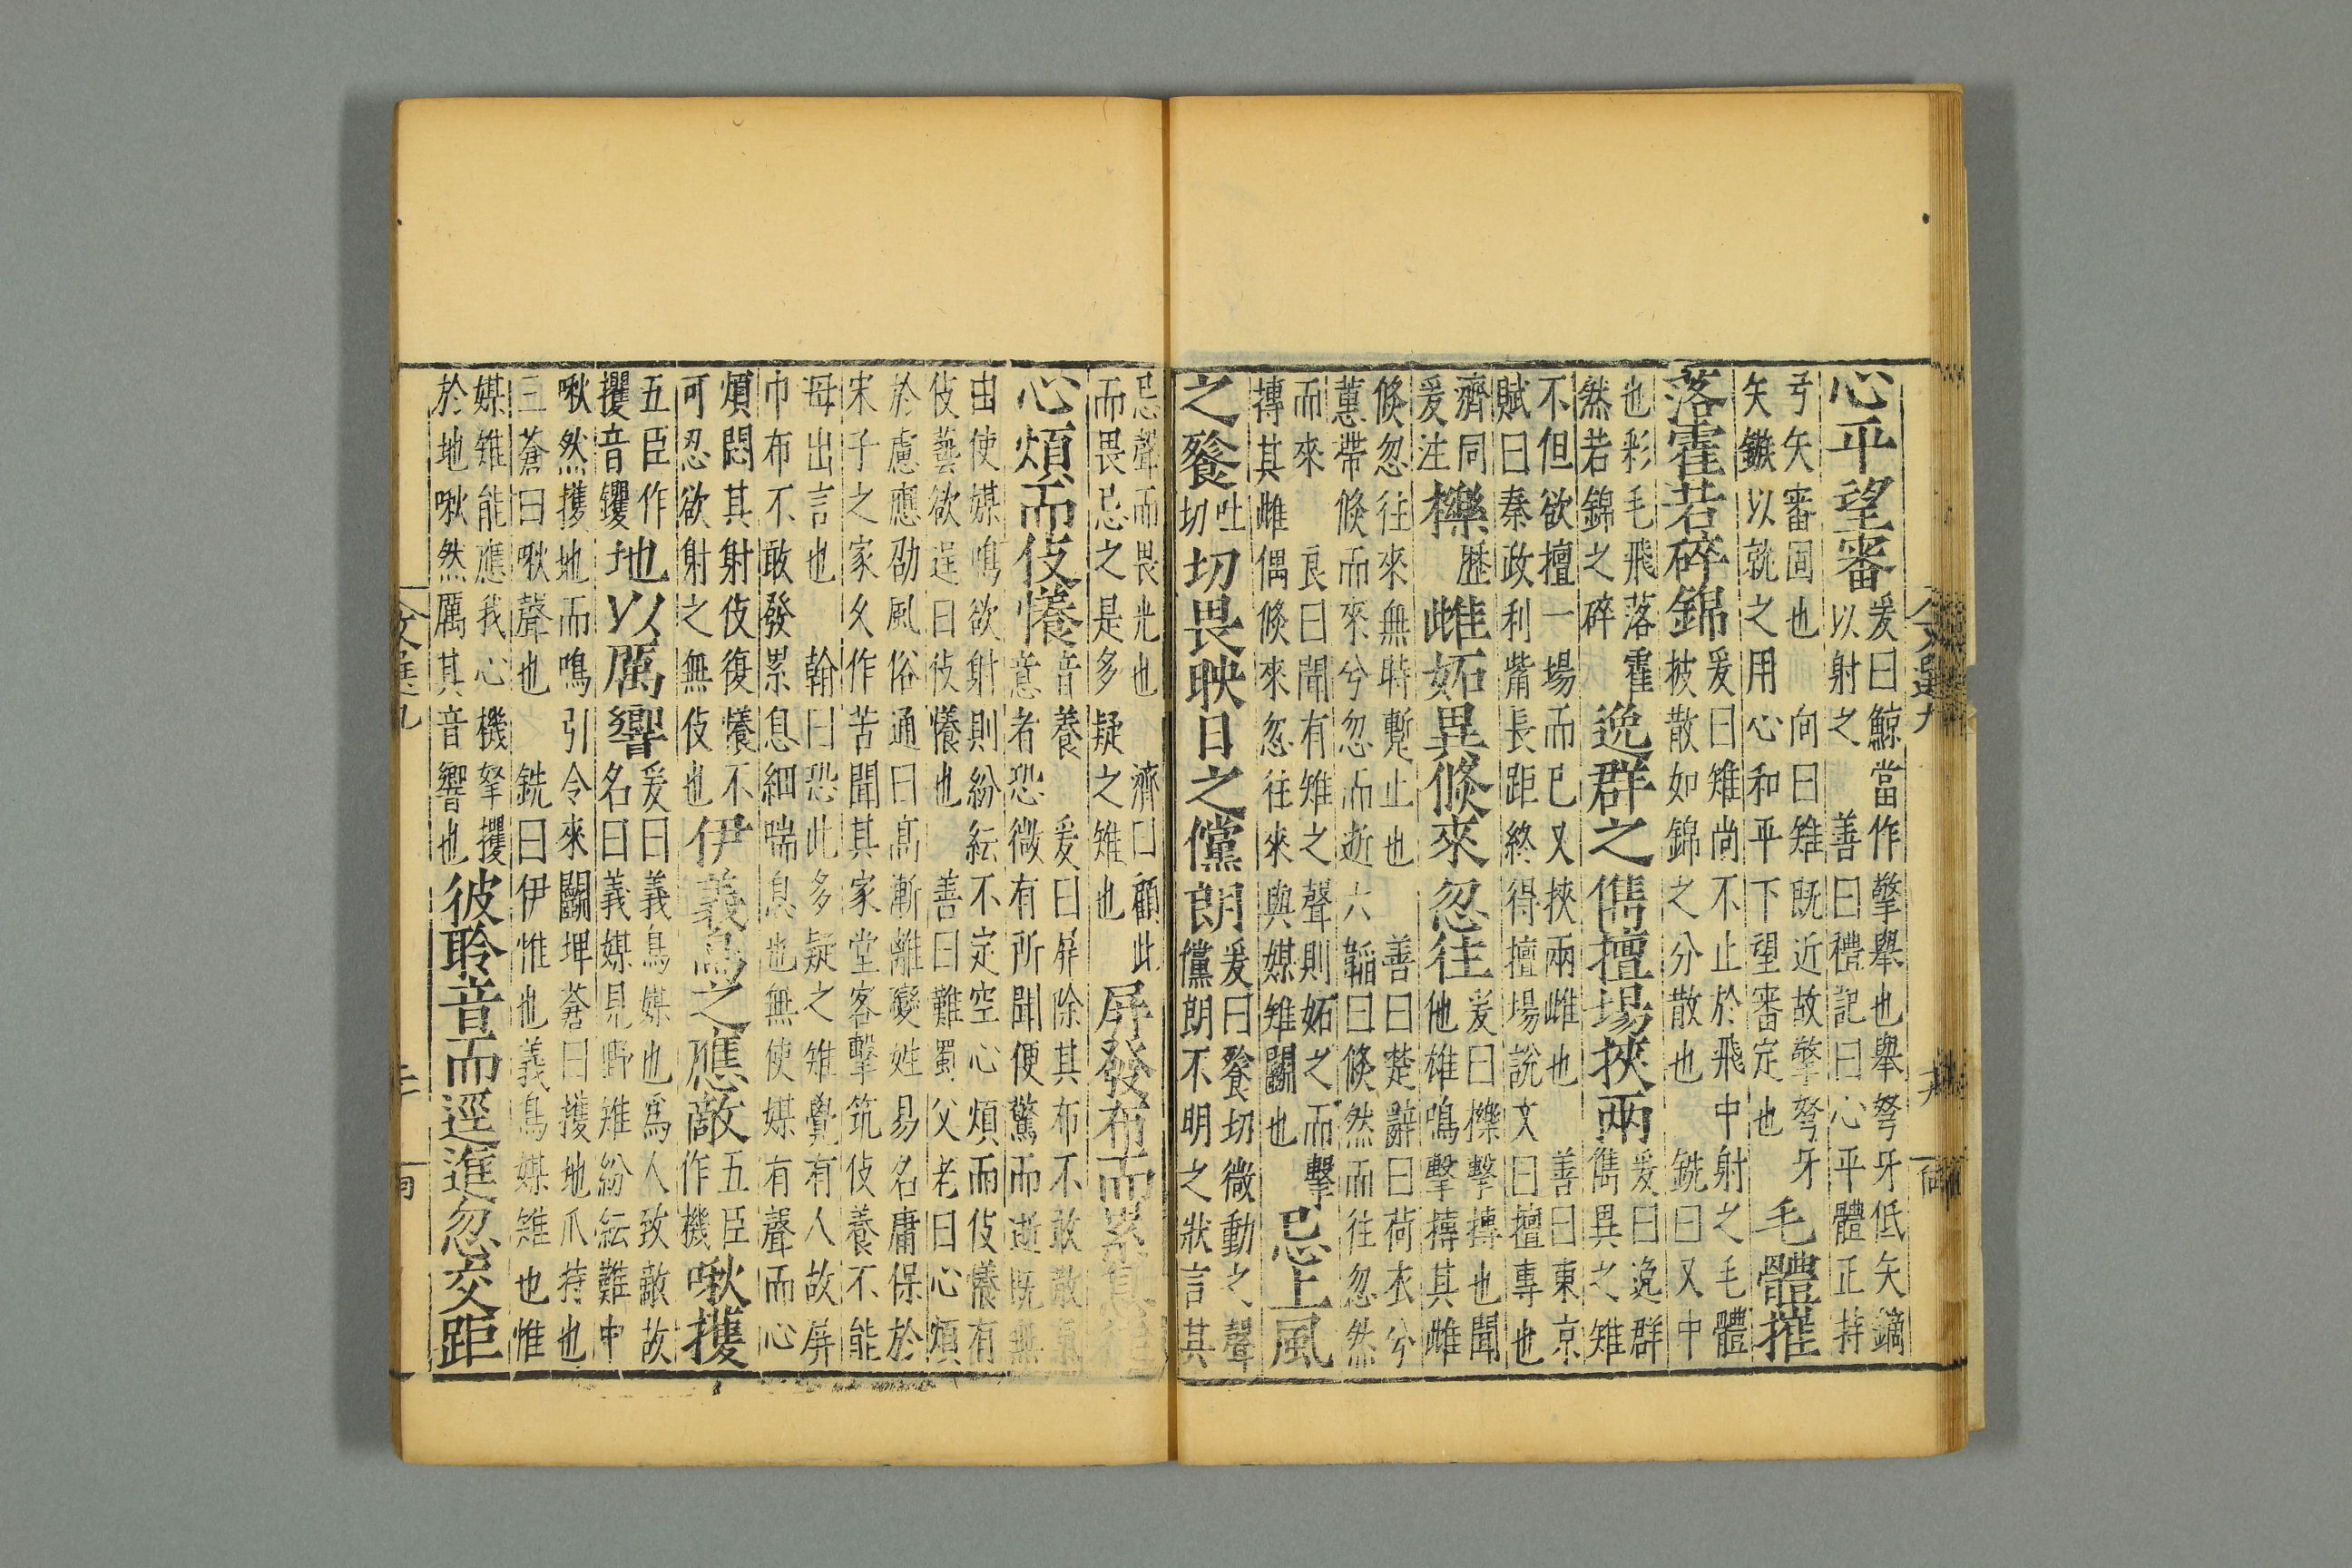 心平望審
爰曰鯨當作擎舉也舉弩牙低矢鏑
以射之 善曰禮記曰心平體正持
弓矢審固也 向曰雉既近故擎弩牙
矢鏃以就之用心和平下望審定也
毛體摧
落霍若碎錦
爰曰雉尚不止於飛中射之毛體
披散如錦之分散也 銑曰又中
也彩毛飛落霍
然若錦之碎
逸群之儁擅場挾兩
爰曰逸群
雋異之雉
不但欲擅一場而已又挾兩雌也 善曰東京
賦曰秦政利觜長距終得擅場說文曰擅專也
濟同
爰注
櫟
歷
雌妬異倏來忽往
爰曰櫟擊摶也聞
他雄鳴擊摶其雌
倏忽往來無時蹔止也 善曰楚辭曰荷衣兮
蕙帶倏而來兮忽而逝六韜曰倏然而往忽然
而來 良曰聞有雉之聲則妬之而擊
摶其雌偶倏來忽往來與媒雉鬬也
忌上風
之餮
吐
切
切畏映日之儻朗
爰曰餮切微動之聲
儻朗不明之狀言其
忌聲而畏光也 濟曰顧此
而畏忌之是多疑之雉也
屏發布而累息徒
心煩而伎懩
音養 爰曰屏除其布不敢散氣
意者恐微有所聞便驚而逝既無
由使媒鳴欲射則紛紜不定空心煩而伎懩有
伎藝欲逞曰伎懩也 善曰難蜀父老曰心煩
於慮應劭風俗通曰高漸離變姓易名庸保於
宋子之家久作苦聞其家堂客擊筑伎養不能
毋出言也 翰曰恐此多疑之雉覺有人故屏
巾布不敢發累息細喘息也無使媒有聲而心
煩悶其射伎復懩不
可忍欲射之無伎也
伊義鳥之應敵
五臣
作機
啾擭
五臣作
攫音钁
地以厲響
爰曰義鳥媒也爲人致敵故
名曰義媒見野雉紛紜難中
啾然擭地而鳴引令來鬬埤蒼曰擭地爪持也
三蒼曰啾聲也 銑曰伊惟也義鳥媒雉也惟
媒雉能應我心機弩攫
於地啾然厲其音響也
彼聆音而逕進忽交距
文選九